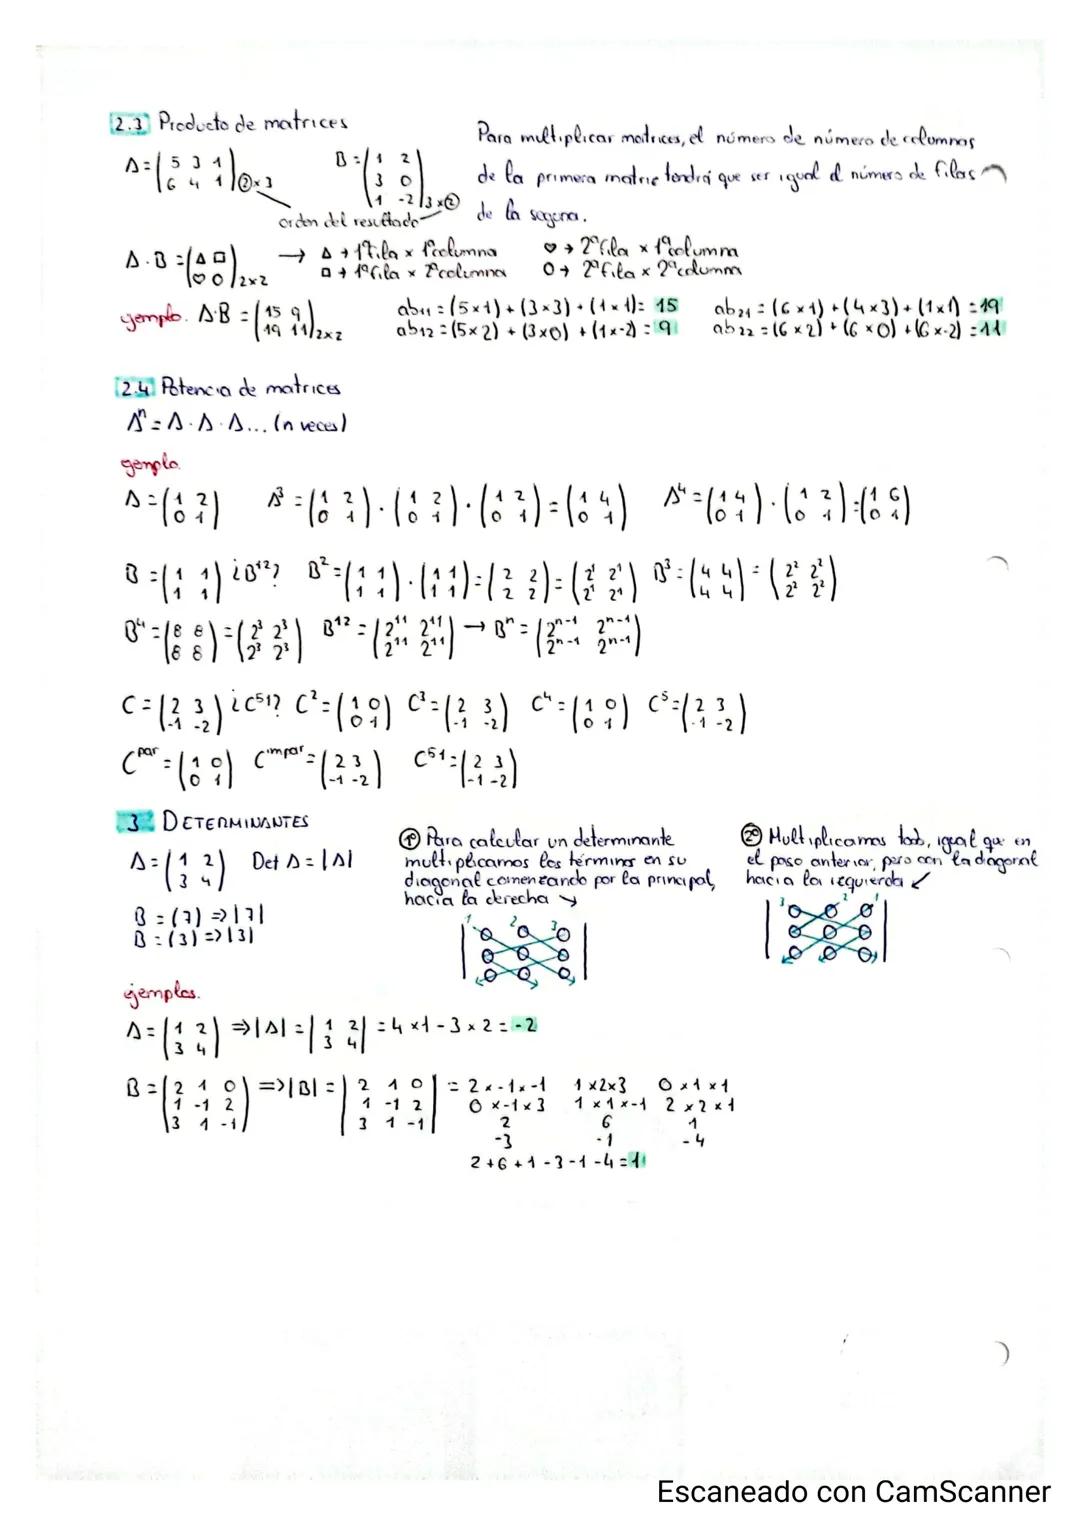 2.3 Producto de matrices
A = ( 5 3 1 / 6 4 1 ) ②x3   B = ( 1 2 / 3 0 / 1 -2 ) 3x②
orden del resultado
Para multiplicar matrices, el número de número de columnas
de la primera matriz tendrá que ser igual al número de filas
de la seguna.
A · B = ( △ □ / ♡ O ) 2x2 → △ → 1ª fila x 1ª columna   ♡ → 2ª fila x 1ª columna
□ → 1ª fila x 2ª columna   O → 2ª fila x 2ª columna
ejemplo. A·B = ( 15 9 / 19 11 ) 2x2   ab11 = (5x1) + (3x3) + (1x1) = 15   ab21 = (6x1) + (4x3) + (1x1) = 19
ab12 = (5x2) + (3x0) + (1x-2) = 9   ab22 = (6x2) + (6x0) + (6x-2) = 11
2.4 Potencia de matrices
Aⁿ = A · A · A... (n veces)
ejemplo.
A = ( 1 2 / 0 1 )   A³ = ( 1 2 / 0 1 ) · ( 1 2 / 0 1 ) · ( 1 2 / 0 1 ) = ( 1 4 / 0 1 )   A⁴ = ( 1 4 / 0 1 ) · ( 1 2 / 0 1 ) = ( 1 6 / 0 1 )
B = ( 1 1 / 1 1 ) ¿B¹²?   B² = ( 1 1 / 1 1 ) · ( 1 1 / 1 1 ) = ( 2 2 / 2 2 ) = ( 2¹ 2¹ / 2¹ 2¹ )   B³ = ( 4 4 / 4 4 ) = ( 2² 2² / 2² 2² )
B⁴ = ( 8 8 / 8 8 ) = ( 2³ 2³ / 2³ 2³ )   B¹² = ( 2¹¹ 2¹¹ / 2¹¹ 2¹¹ ) → Bⁿ = ( 2ⁿ⁻¹ 2ⁿ⁻¹ / 2ⁿ⁻¹ 2ⁿ⁻¹ )
C = ( 2 3 / -1 -2 ) ¿C⁵¹?   C² = ( 1 0 / 0 1 )   C³ = ( 2 3 / -1 -2 )   C⁴ = ( 1 0 / 0 1 )   C⁵ = ( 2 3 / -1 -2 )
Cᵖᵃʳ = ( 1 0 / 0 1 )   Cⁱᵐᵖᵃʳ = ( 2 3 / -1 -2 )   C⁵¹ = ( 2 3 / -1 -2 )
3. DETERMINANTES
A = ( 1 2 / 3 4 )   Det A = |A|
B = (7) ⇒ |7|
B = (3) ⇒ |3|
1º Para calcular un determinante
multiplicamos los términos en su
diagonal comenzando por la principal,
hacia la derecha ↘
1 2 3
2º Multiplicamos todo, igual que en
el paso anterior, pero con la diagonal
hacia la izquierda ↙
3 2 1
ejemplos.
A = ( 1 2 / 3 4 ) ⇒ |A| = | 1 2 / 3 4 | = 4x1 - 3x2 = -2
B = ( 2 1 0 / 1 -1 2 / 3 1 -1 ) ⇒ |B| = | 2 1 0 / 1 -1 2 / 3 1 -1 | = 2x-1x-1   1x2x3   0x1x1
0x-1x3   1x1x-1   2x2x1
2   6   1
-3   -1   -4
2+6+1-3-1-4 = 1
Escaneado con CamScanner